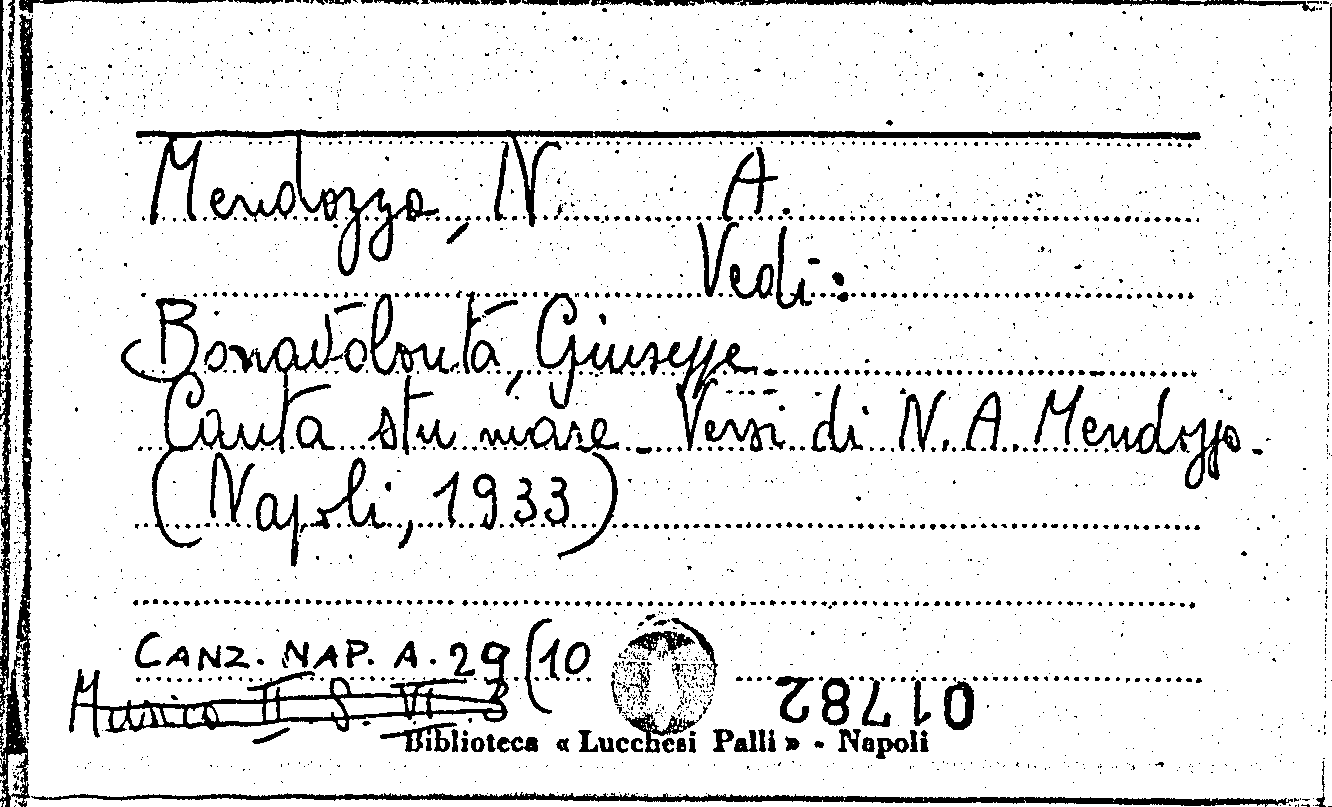 Mendozza, N. A.
Vedi:
Bonavolontà, Giuseppe.
Canta stu mare. Versi di N. A. Mendozza.
(Napoli, 1933)
CANZ. NAP. A. 29 (10
Musica II. S. VI. 3
01782
Biblioteca « Lucchesi Palli » - Napoli